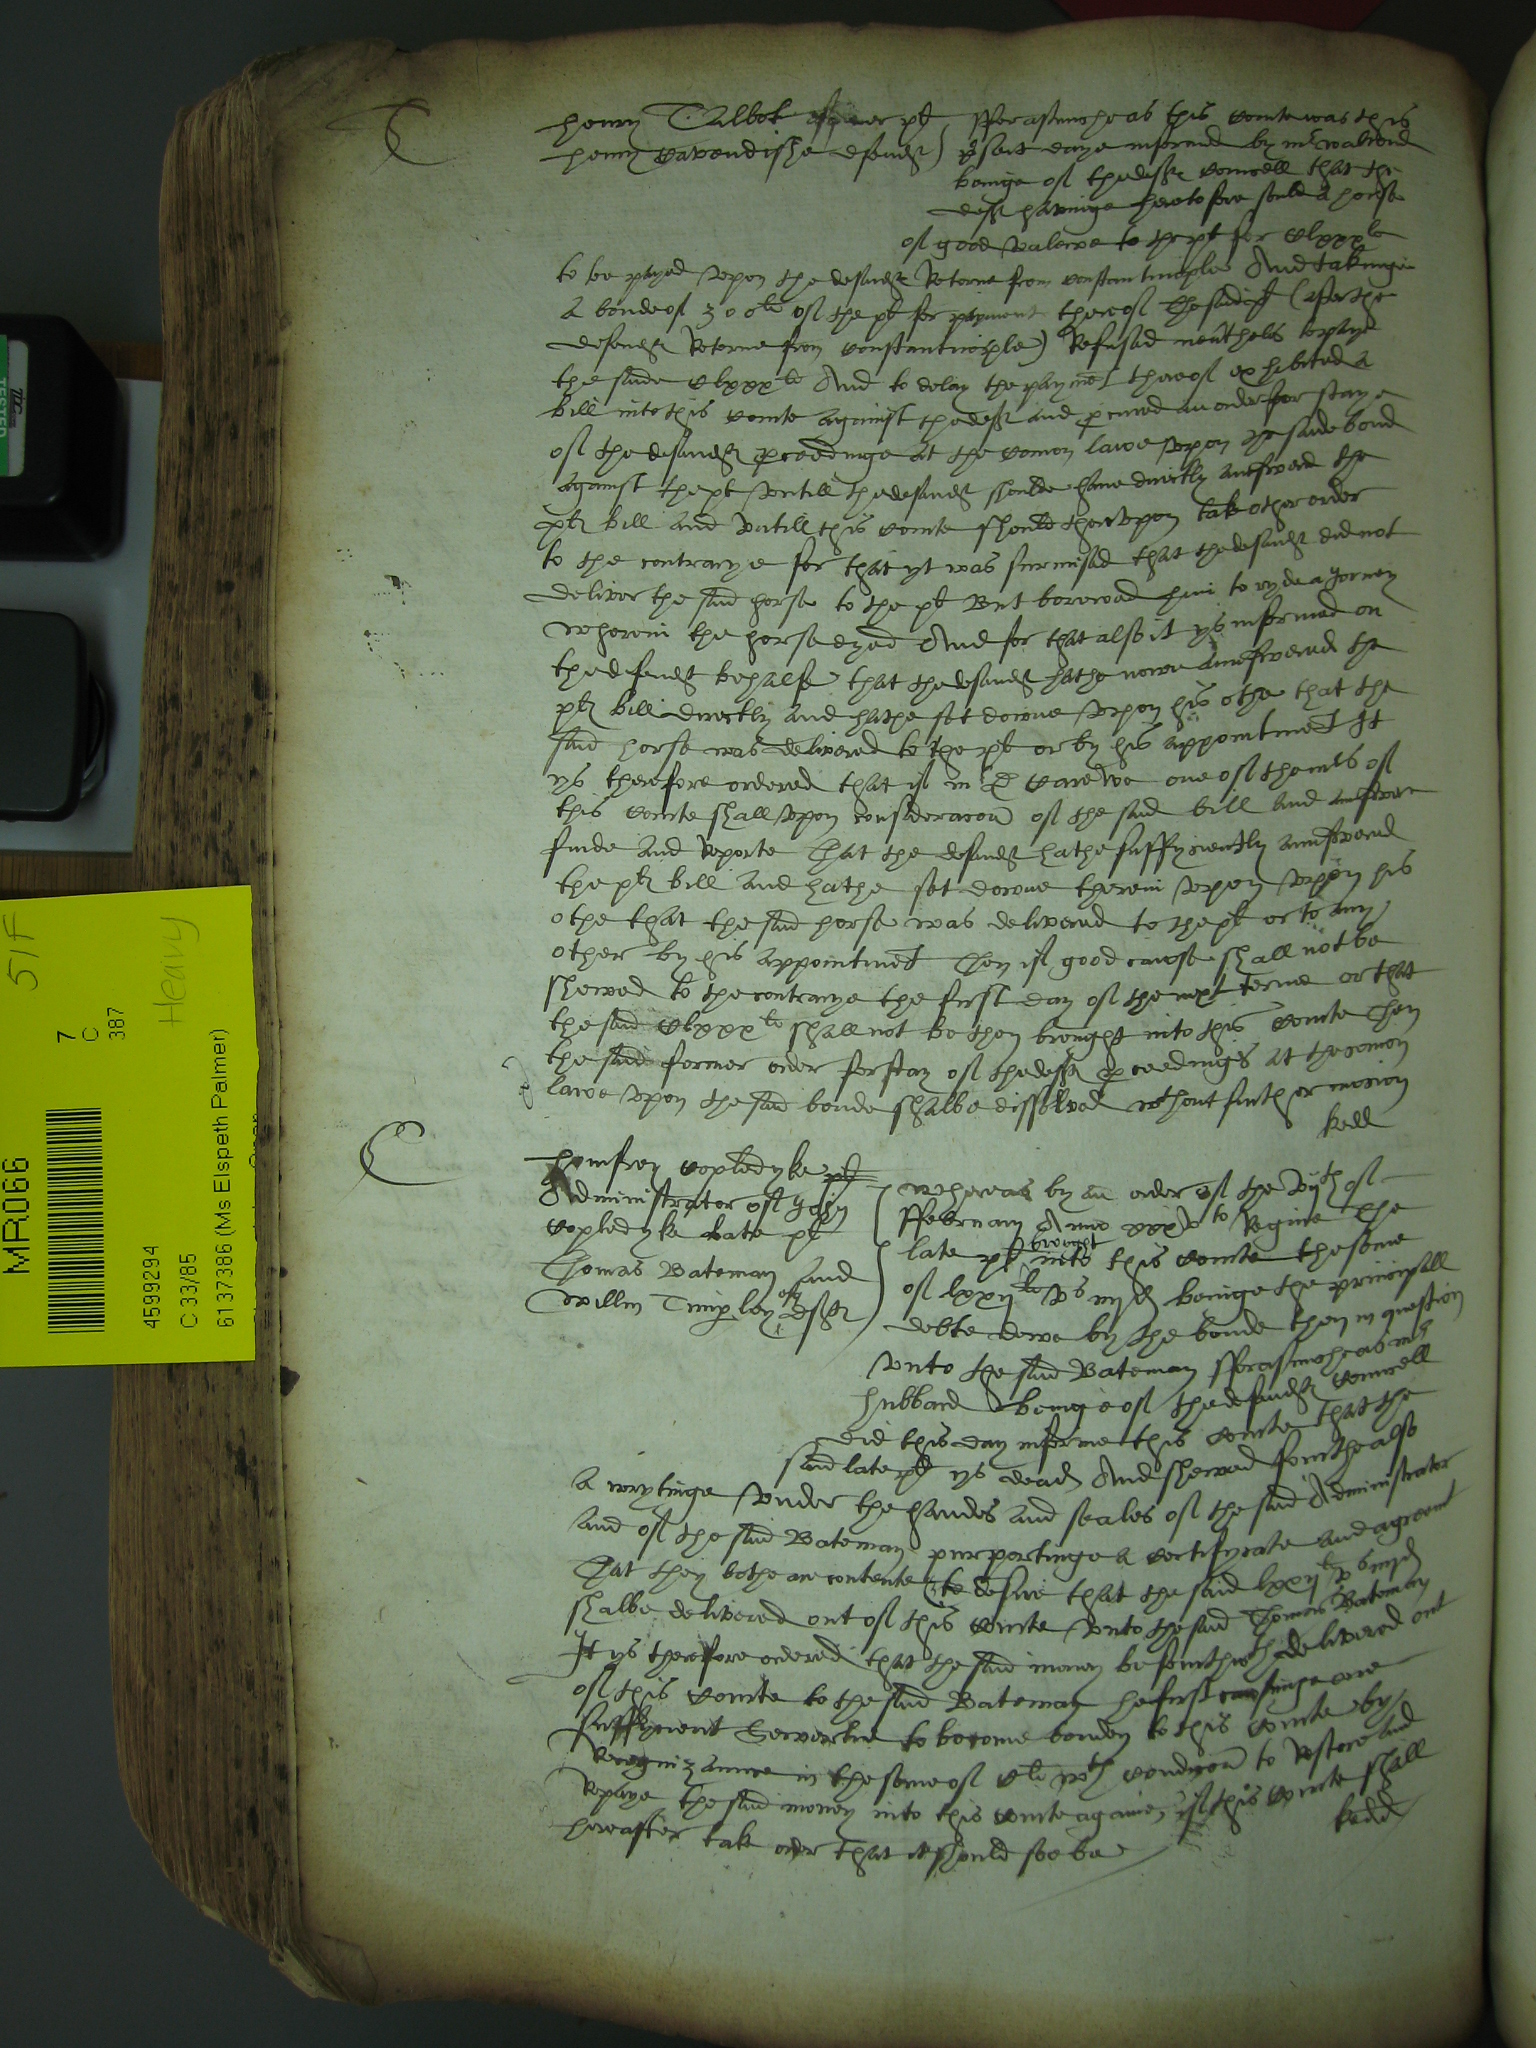 C
Henry Talbot esquier pl
Henry Cavendishe defendt
fforasmoche as this courte was this
present daye informed by mr walrond
beinge of thedeftes councell that the
deft havinge heretofore sould a horse
of good valewe to the pl for Clxxxli
to be payed vpon the defendtes Retorne from constantinople And takinge
a bonde of 300li of the pl for payment thereof The said pl (after the
defendtes Retorne from constantinople) Refused neutheles to paye
the saide Clxxxli And to delay the paymet thereof exhibited a
bill into this courte against thedeft and procured an order for staye
of the defendtes proceedinge at the comon lawe vpon the saide bond
against the pl vntill the defendt should have directly answered the
pls bill and vntill this courte should therevpon take other order
to the contrarye for that yt was surmised that the defendt did not
deliver the said horse to the pl But borowed him to ryde a Jorney
wherein the horse dyed And for that also it ys informed on
the defendtes behalfe that the defendt hathe nowe aunswered the
pls bill directly and hathe set downe vpon his othe that the
said horse was delivered to the pl or by his appointmet It
ys therefore ordered that if mr D Carewe one of the mrs of
this courte shall vpon consideracon of the said bill and aunswere
finde and Reporte That the defendt hathe suffyciently aunswered
the pls bill and hathe set downe therein vpon vpon his
othe that the said horse was delivered to the pl or to any
other by his appointmet Then if good cawse shall not be
shewed to the contrarye the first day of the next terme or that
the said Clxxxli shall not be then brought into this courte Then
the said former order for stay of thedeftes proceedinges at the comon
lawe vpon the said bonde shalbe dissolved wthout further mocion
C
Homfrey Copledyke pl
Administrator of John
Copledyke late pl
Thomas Bateman and
Willm Timperley esq deftes
whereas by an order of the vijth of
ffebruary Anno xxxto Regine The
late pl brought into this courte the some
of lxxijli vs iiijd beinge the principall
debte dewe by the bonde then in question
vnto the said Bateman fforasmoche as mr
Hubbard beinge of the defendtes councell
did this day informe this courte that the
said late pl ys dead And shewed fourthe also
a wrytinge vnder the handes and seales of the said Administrator
and of the said Bateman purportinge a certifycate and agreemt
That they bothe are contente to desire that the said lxxijli vs iiijd
shalbe delivered out of this courte vnto the said Thomas Bateman
It ys therefore ordered that the said money be fourthwth delivered out
of this courte to the said Bateman he first causinge one
suffycient Suertie to become bounden to this courte by
Recognizaunce in the some of Cli wth condicon to Restore and
Repaye the said money into this courte againe if this courte shall
hereafter take order that it should soe be
MR066
4599294
C 33/85
6137386 (Ms Elspeth Palmer)
7
C
387
51F
Heavy
TESTED